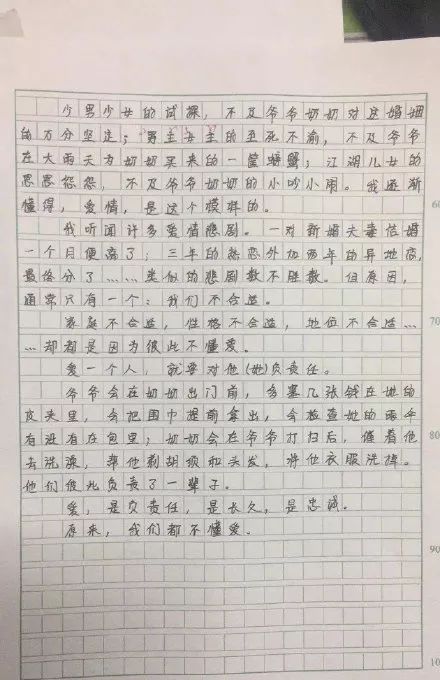 少男少女的试探，不及爷爷奶奶对这婚姻
的万分坚定；男主女主的至死不渝，不及爷爷
在大雨天为奶奶买来的一筐螃蟹；江湖儿女的
恩恩怨怨，不及爷爷奶奶的小吵小闹。我逐渐
懂得，爱情，是这个模样的。
60
我听闻许多爱情悲剧。一对新婚夫妻结婚
一个月便离了；三年的热恋外加两年的异地恋，
最终分了……类似的悲剧数不胜数。但原因，
通常只有一个：我们不合适。
70
家庭不合适，性格不合适，地位不合适…
…却都是因为彼此不懂爱。
爱一个人，就要对他(她)负责任。
爷爷会在奶奶出门前，多塞几张钱在她的
皮夹里，会把围巾提前拿出，会检查她的眼
有没有在包里；奶奶会在爷爷打扫后，催着他
80
去洗澡，帮他剃胡须和头发，将他衣服洗掉。
他们彼此负责了一辈子。
爱，是负责任，是长久，是忠诚。
原来，我们都不懂爱。
90
10